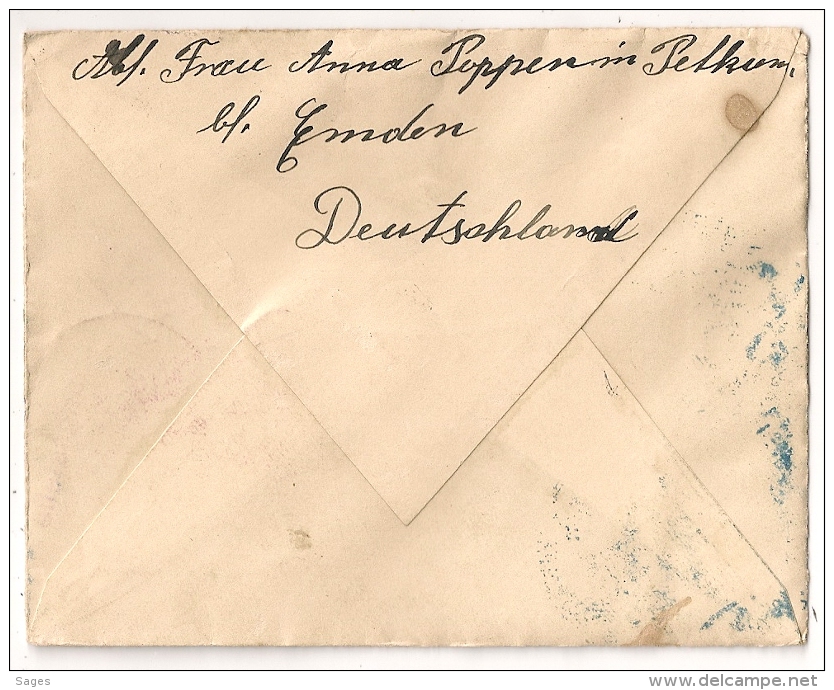 Abs. Frau Anna Poppen in Petkum.
b/. Emden
Deutschland
Sages
www.delcampe.net